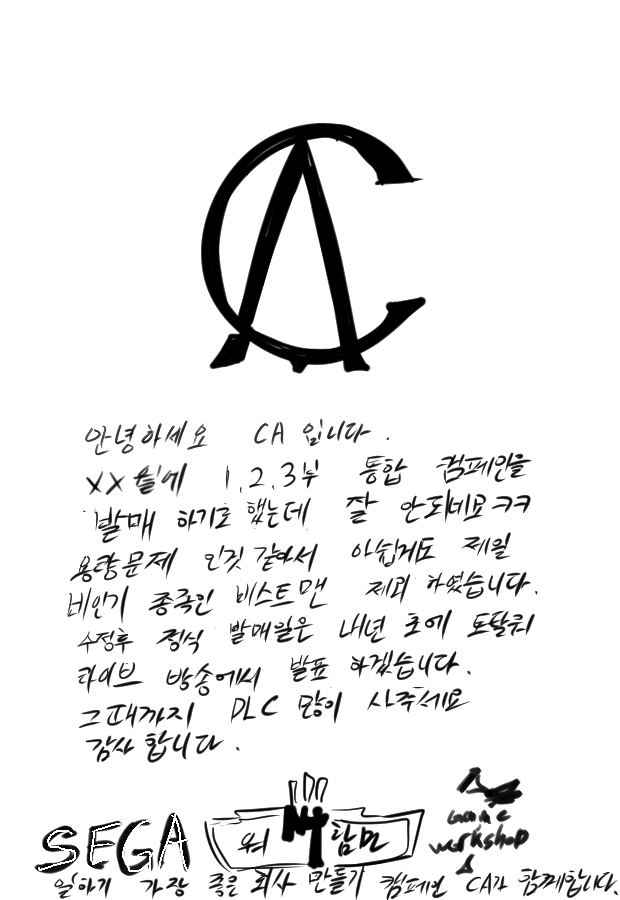 CA
안녕하세요 CA 입니다.
XX월에 1,2,3부 통합 캠페인을
발매 하기로 했는데 잘 안되네요 ㅋㅋ
용량문제 인것 같아서 아쉽게도 제일
비인기 종족인 비스트맨 제외 하였습니다.
수정후 정식 발매일은 내년 초에 토탈워
라이브 방송에서 발표 하겠습니다.
그때까지 DLC 많이 사주세요
감사합니다.
SEGA 워 햄머 Game workshop
일하기 가장 좋은 회사 만들기 캠페인 CA가 함께합니다.